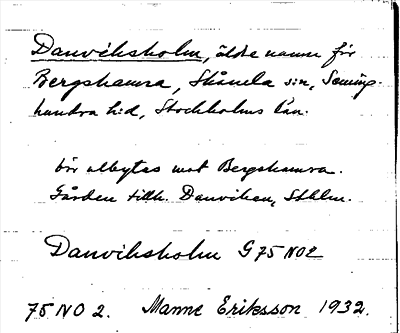 Danviksholm, äldre namn för
Bergshamra, Skånela sn, Seming-
hundra hd, Stockholms län.
bör utbytas mot Bergshamra.
Gården tillh. Danviken, Sthlm.
Danviksholm G 75 NO2
75 NO 2. Manne Eriksson 1932.